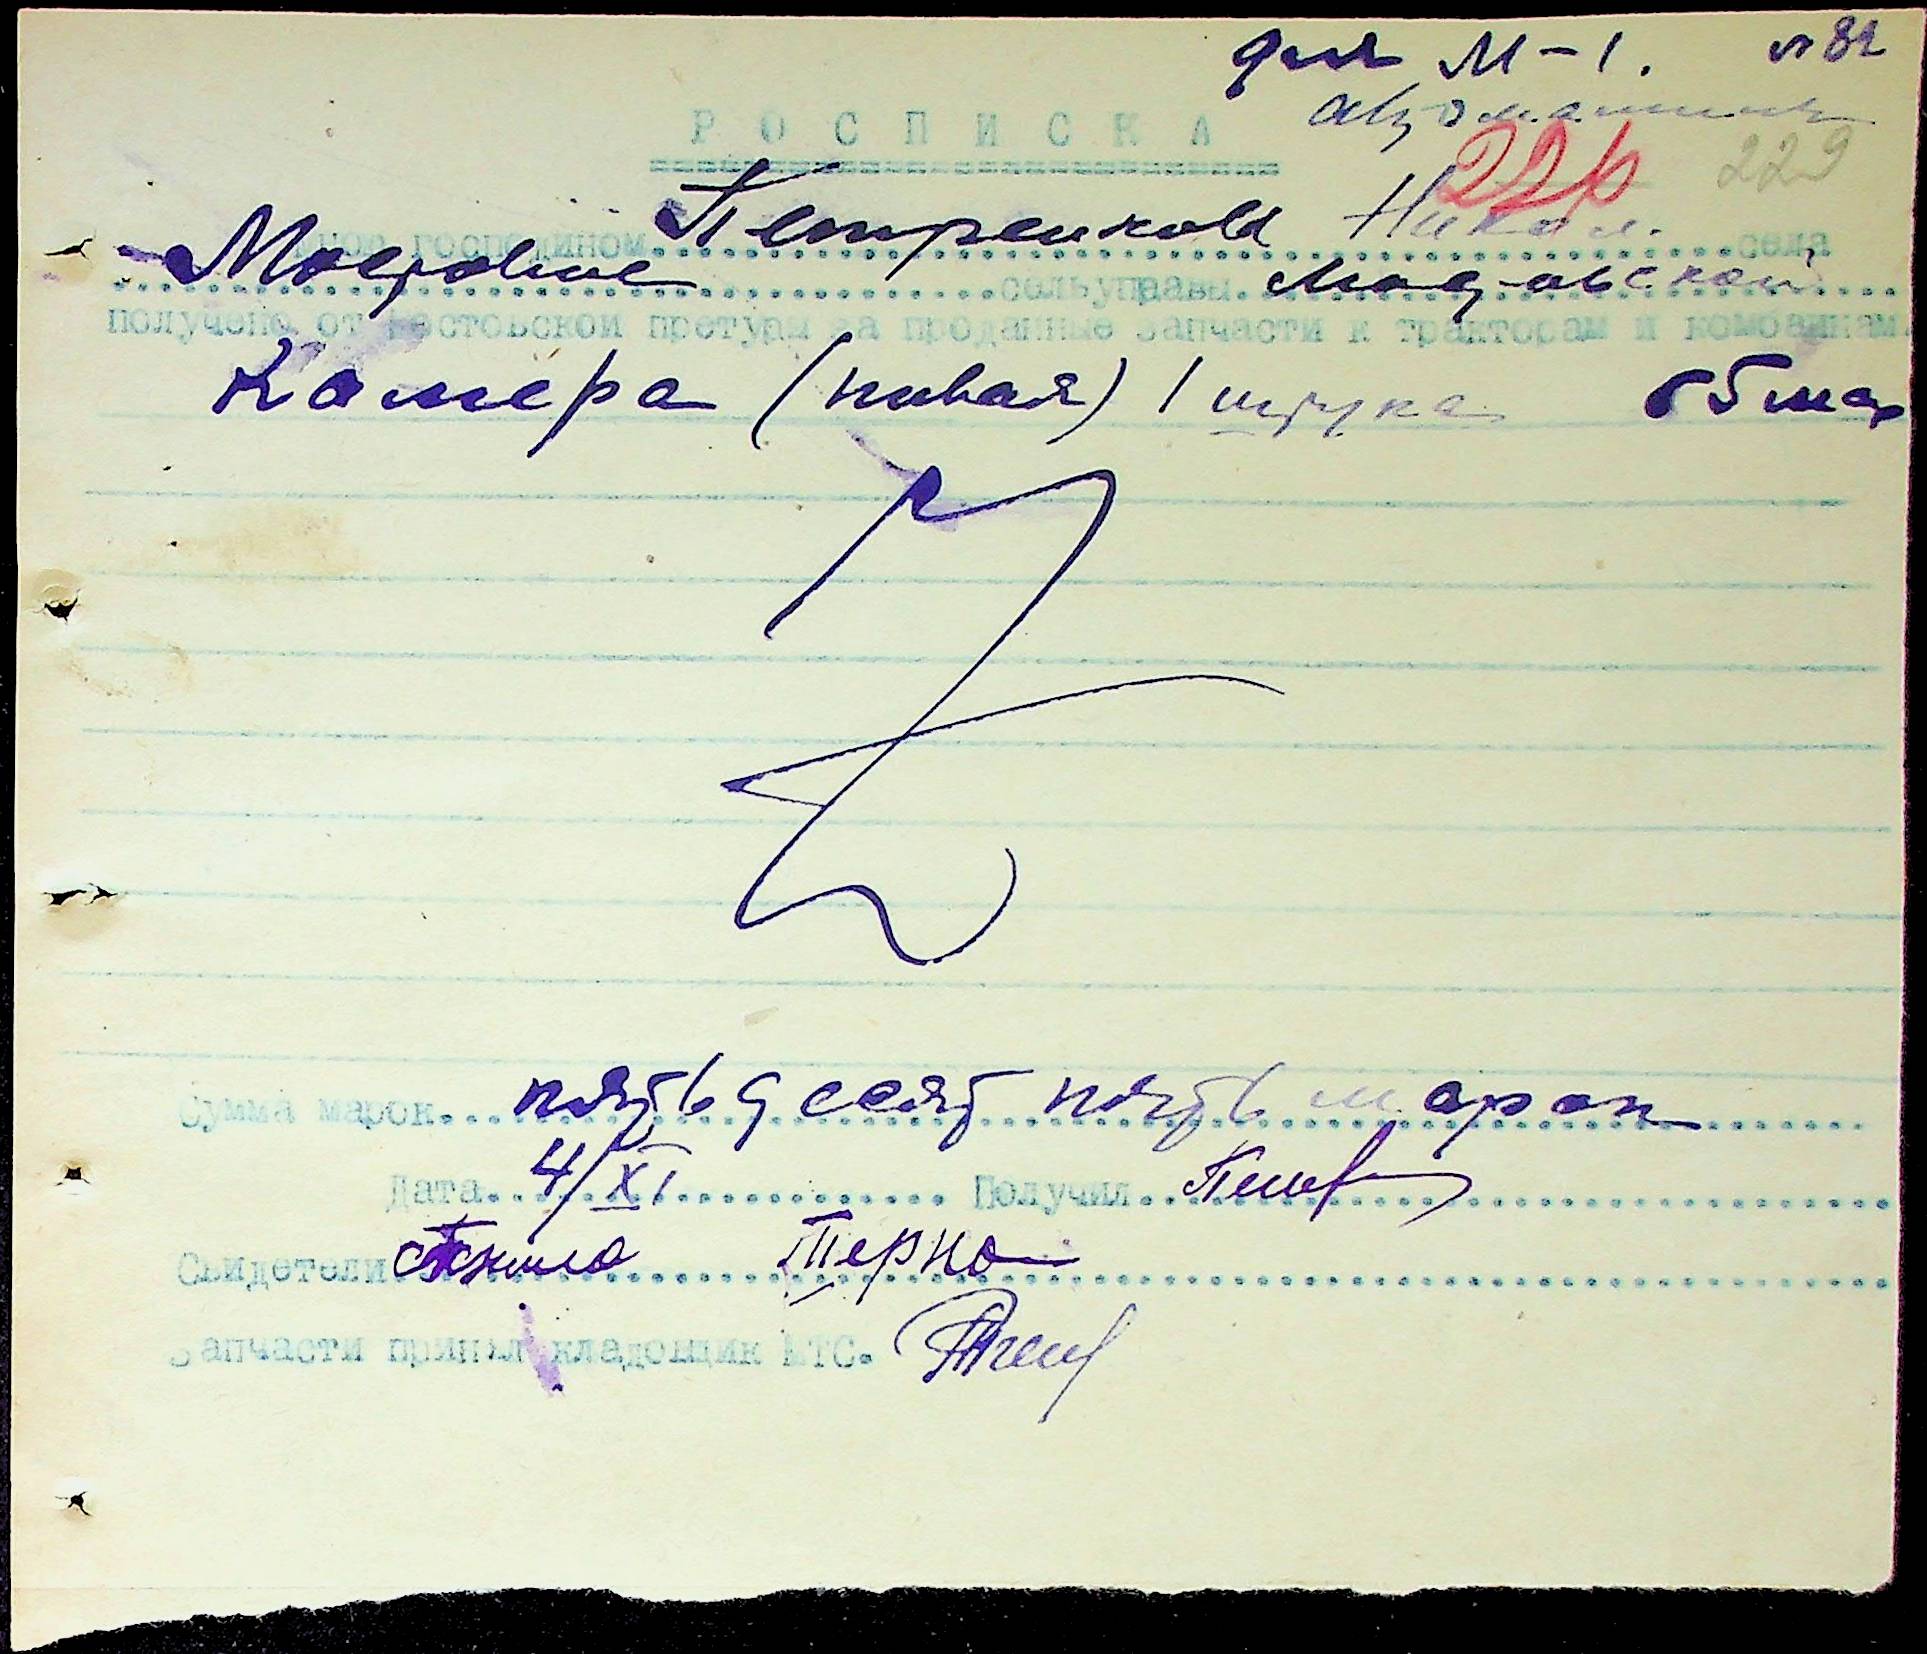 для М-1. № 82
автомашины
Р О С П И С К А
229
мною господином Петренково Никол. села
сельуправы
получено от Мостовской претуры за проданные запчасти к тракторам и комбайнам
Камера (новая) 1 штука 55 мар
Сумма марок пятьдесят пять марок
Дата 4/XI Получил
Свидетели Терно
Запчасти принял кладовщик МТС.